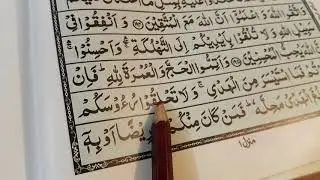 وَاتَّقُوا اللّٰهَ وَاعْلَمُوْۤا اَنَّ اللّٰهَ مَعَ الْمُتَّقِيْنَ ﴿۱۹۴﴾ وَاَنْفِقُوْا فِيْ
تُلْقُوْا بِاَيْدِيْكُمْ اِلَى التَّهْلُكَةِ ۛۚ وَاَحْسِنُوْا ۛۚ
يُحِبُّ الْمُحْسِنِيْنَ ﴿۱۹۵﴾ وَاَتِمُّوا الْحَجَّ وَالْعُمْرَةَ لِلّٰهِ ؕ فَاِنْ
فَمَا اسْتَيْسَرَ مِنَ الْهَدْيِ ۚ وَلَا تَحْلِقُوْا رُءُوْسَكُمْ
الْهَدْيُ مَحِلَّهٗ ؕ فَمَنْ كَانَ مِنْكُمْ مَّرِيْضًا اَوْ بِهٖۤ
منزل ۱